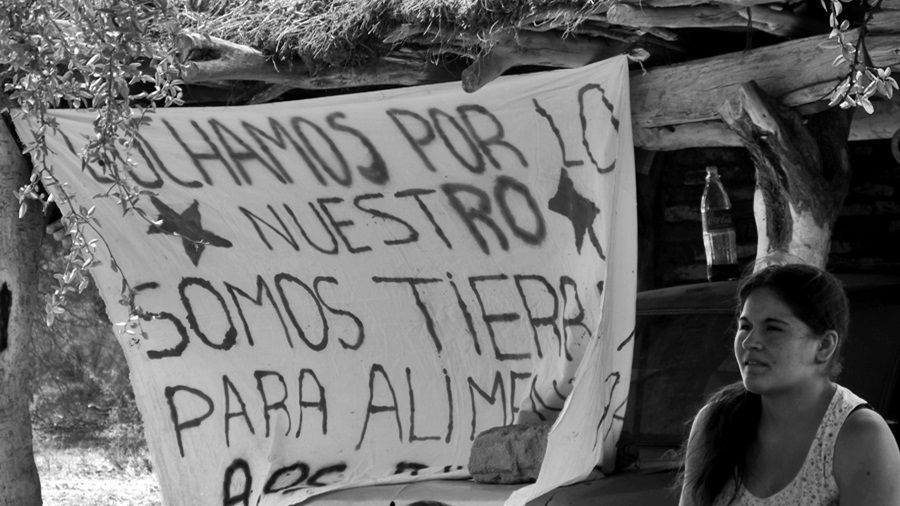 LUCHAMOS POR LO
NUESTRO
SOMOS TIERRA
PARA ALIMENTAR